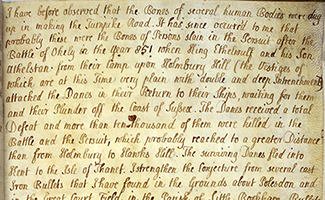 I have before observed that the Bones of several human Bodies were dug
up in making the Turnpike Road. It has since occurred to me that
probably these were the Bones of Persons slain in the Persuit after the
Battle of Okely in the Year 851 when King Ethelwulf and his Son
Athelstan from their Camp upon Holmbury Hill (the Vestiges of
which are at this Time very plain with double and deep Intrenchments
attacked the Danes in their Return to their Ships waiting for them
and their Plunder off the Coast of Sussex. The Danes received a total
Defeat and more than ten thousand of them were killed in the
Battle and the Persuit, which probably reached to a greater Distance
than from Holmbury to Hawks Hill. The surviving Danes fled into
Kent to the Isle of Thanet. I strengthen the Conjecture from several cast
Iron Bullets that I have found in the Grounds about Polesdon and
in the Great Court Field in the Parish of Little Bookham. Bullets